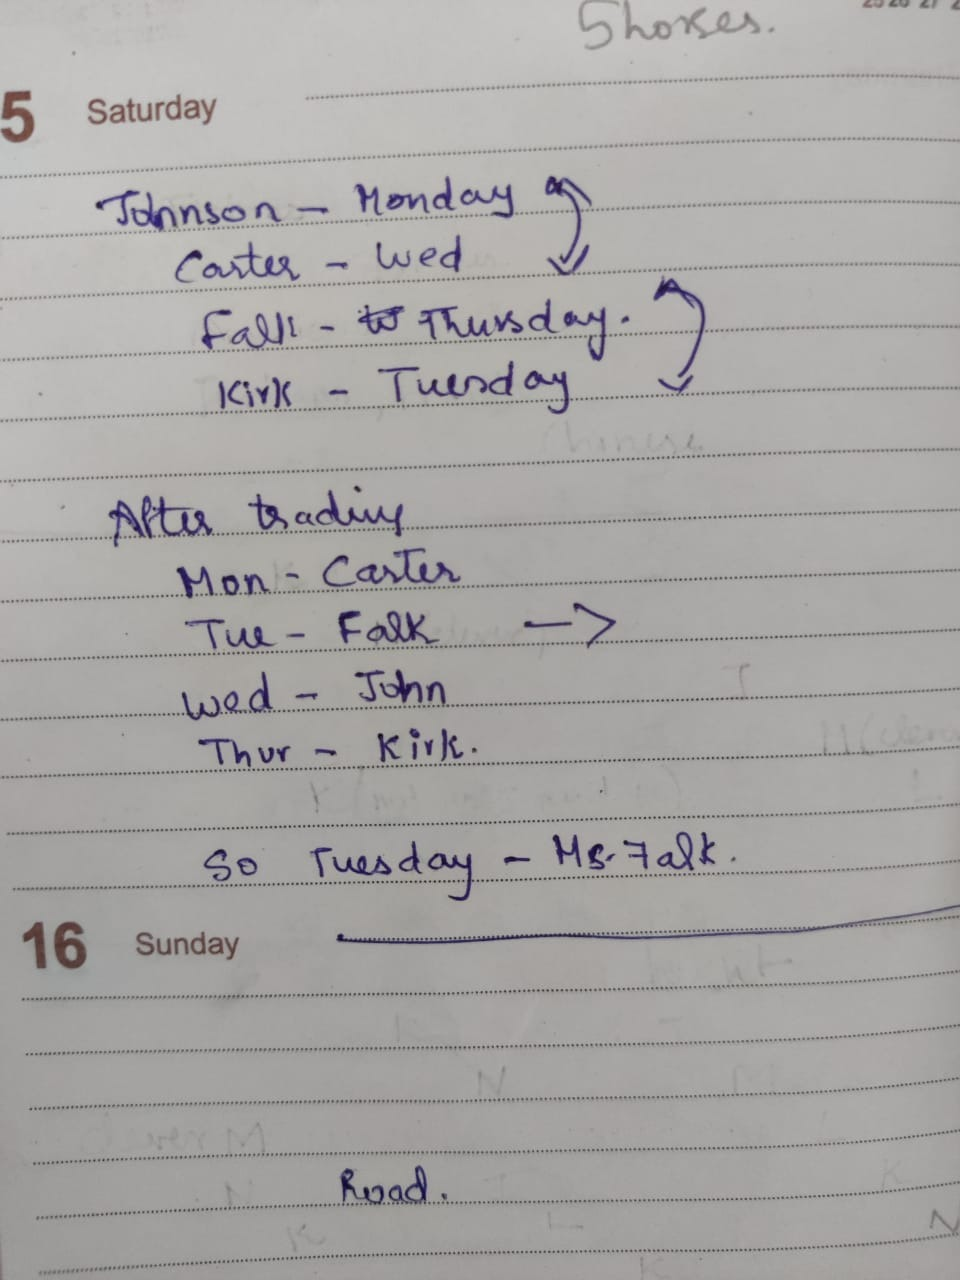 5 horses.
5 Saturday
Johnson - Monday
Carter - Wed
Falk - Thursday.
Kirk - Tuesday
After trading
Mon - Carter
Tue - Falk →
Wed - John
Thur - Kirk.
So Tuesday - Ms. Falk.
16 Sunday
Road.